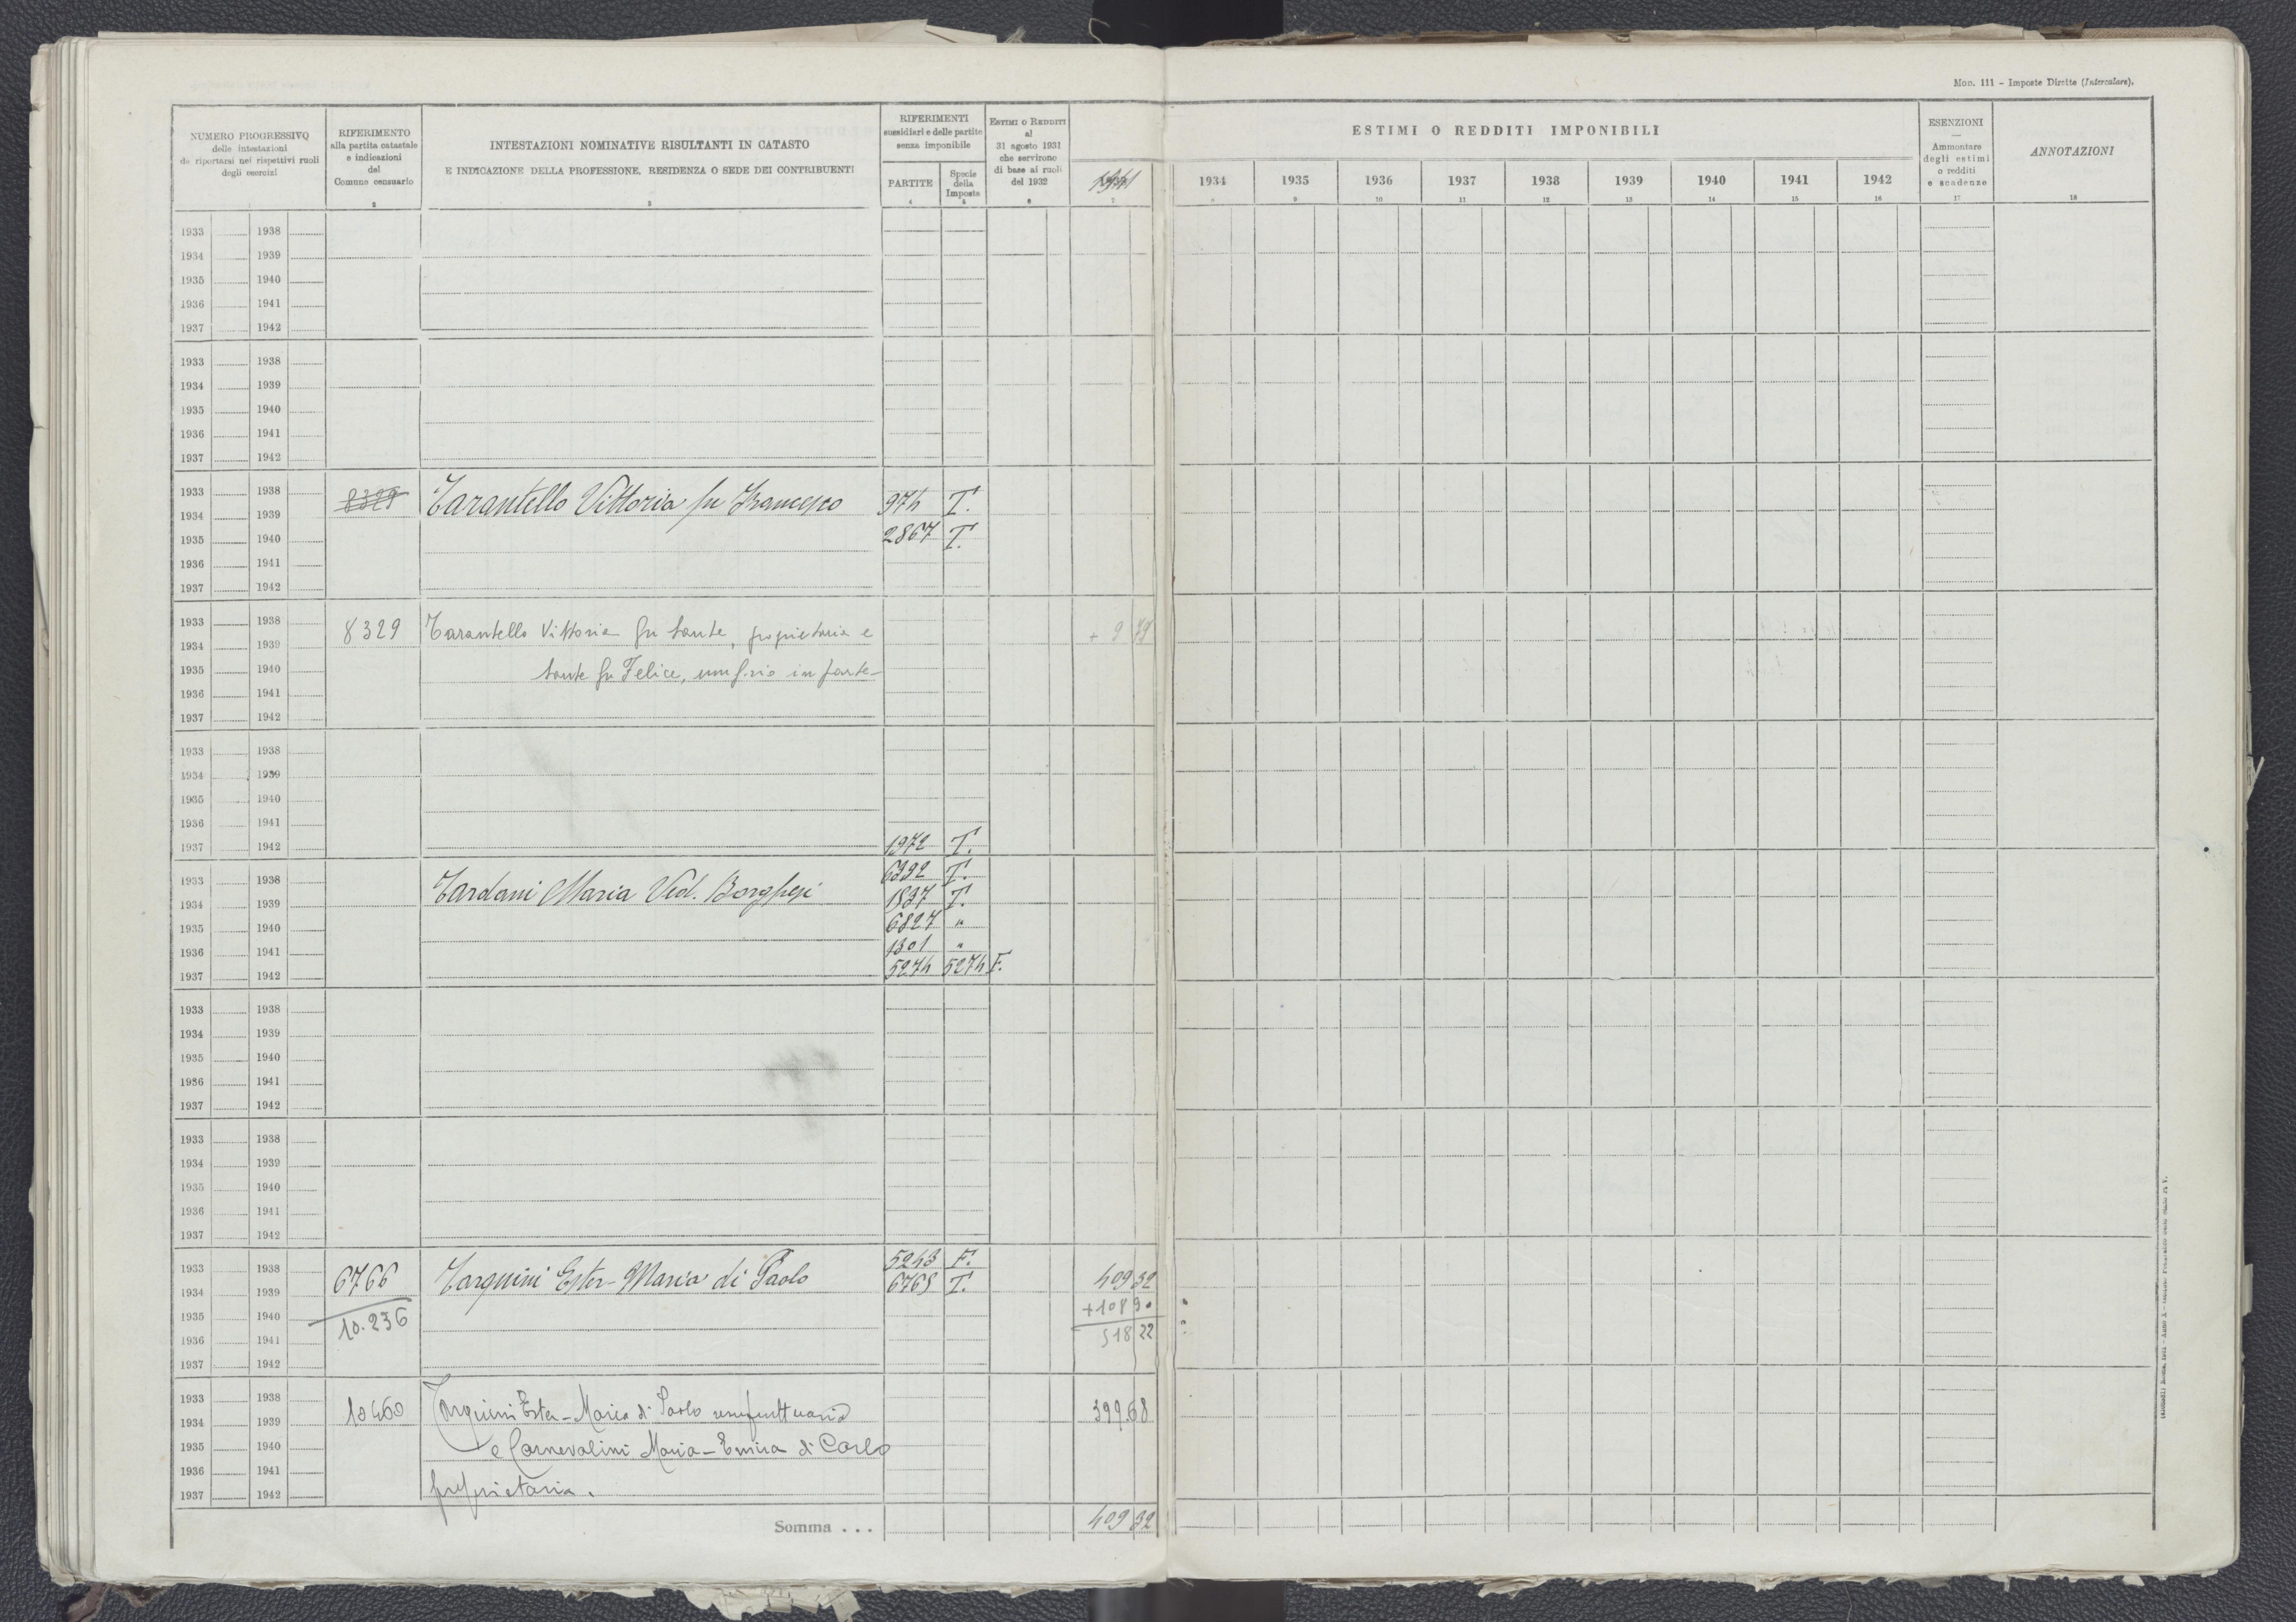 Mod. 111 – Imposte Dirette (Intercalare).
NUMERO PROGRESSIVO
delle intestazioni
da riportarsi nei rispettivi ruoli
degli esercizi
RIFERIMENTO
alla partita catastale
e indicazioni
del
Comune censuario
2
INTESTAZIONI NOMINATIVE RISULTANTI IN CATASTO
E INDICAZIONE DELLA PROFESSIONE, RESIDENZA O SEDE DEI CONTRIBUENTI
3
RIFERIMENTI
sussidiari e delle partite
senza imponibile
PARTITE
4
Specie
della
Imposta
5
ESTIMI O REDDITI
al
31 agosto 1931
che servirono
di base ai ruoli
del 1932
6
7
ESTIMI O REDDITI IMPONIBILI
1934 1935 1936 1937 1938 1939 1940 1941 1942
8 9 10 11 12 13 14 15 16
ESENZIONI
Ammontare
degli estimi
o redditi
e scadenze
17
ANNOTAZIONI
18
1933 1938
1934 1939
1935 1940
1936 1941
1937 1942
1933 1938
1934 1939
1935 1940
1936 1941
1937 1942
1933 1938
8329 Tarantello Vittoria fu Francesco 974 T.
1934 1939
1935 1940 2867 T.
1936 1941
1937 1942
1933 1938
8329 Tarantello Vittoria fu Sante, proprietaria e + 9 79
1934 1939
1935 1940 Sante fu Felice, in parte
1936 1941
1937 1942
1933 1938
1934 1939
1935 1940
1936 1941
1937 1942 1972 T.
1933 1938 6332 T.
1934 1939 Tardani Maria Ved. Borghesi 1837 T.
1935 1940 6827 "
1936 1941 1301 "
1937 1942 5274 5274 F.
1933 1938
1934 1939
1935 1940
1936 1941
1937 1942
1933 1938
1934 1939
1935 1940
1936 1941
1937 1942
1933 1938 5243 F.
6766 Tarquini Ester-Maria di Paolo 6765 T. 409 32
1934 1939
1935 1940 10.236 +108 90
1936 1941 518 22
1937 1942
1933 1938
10460 Tarquini Ester-Maria di Paolo usufruttuaria 399.68
1934 1939
1935 1940 e Carnevalini Maria-Emira di Carlo
1936 1941
1937 1942 proprietaria.
Somma . . . 409 32